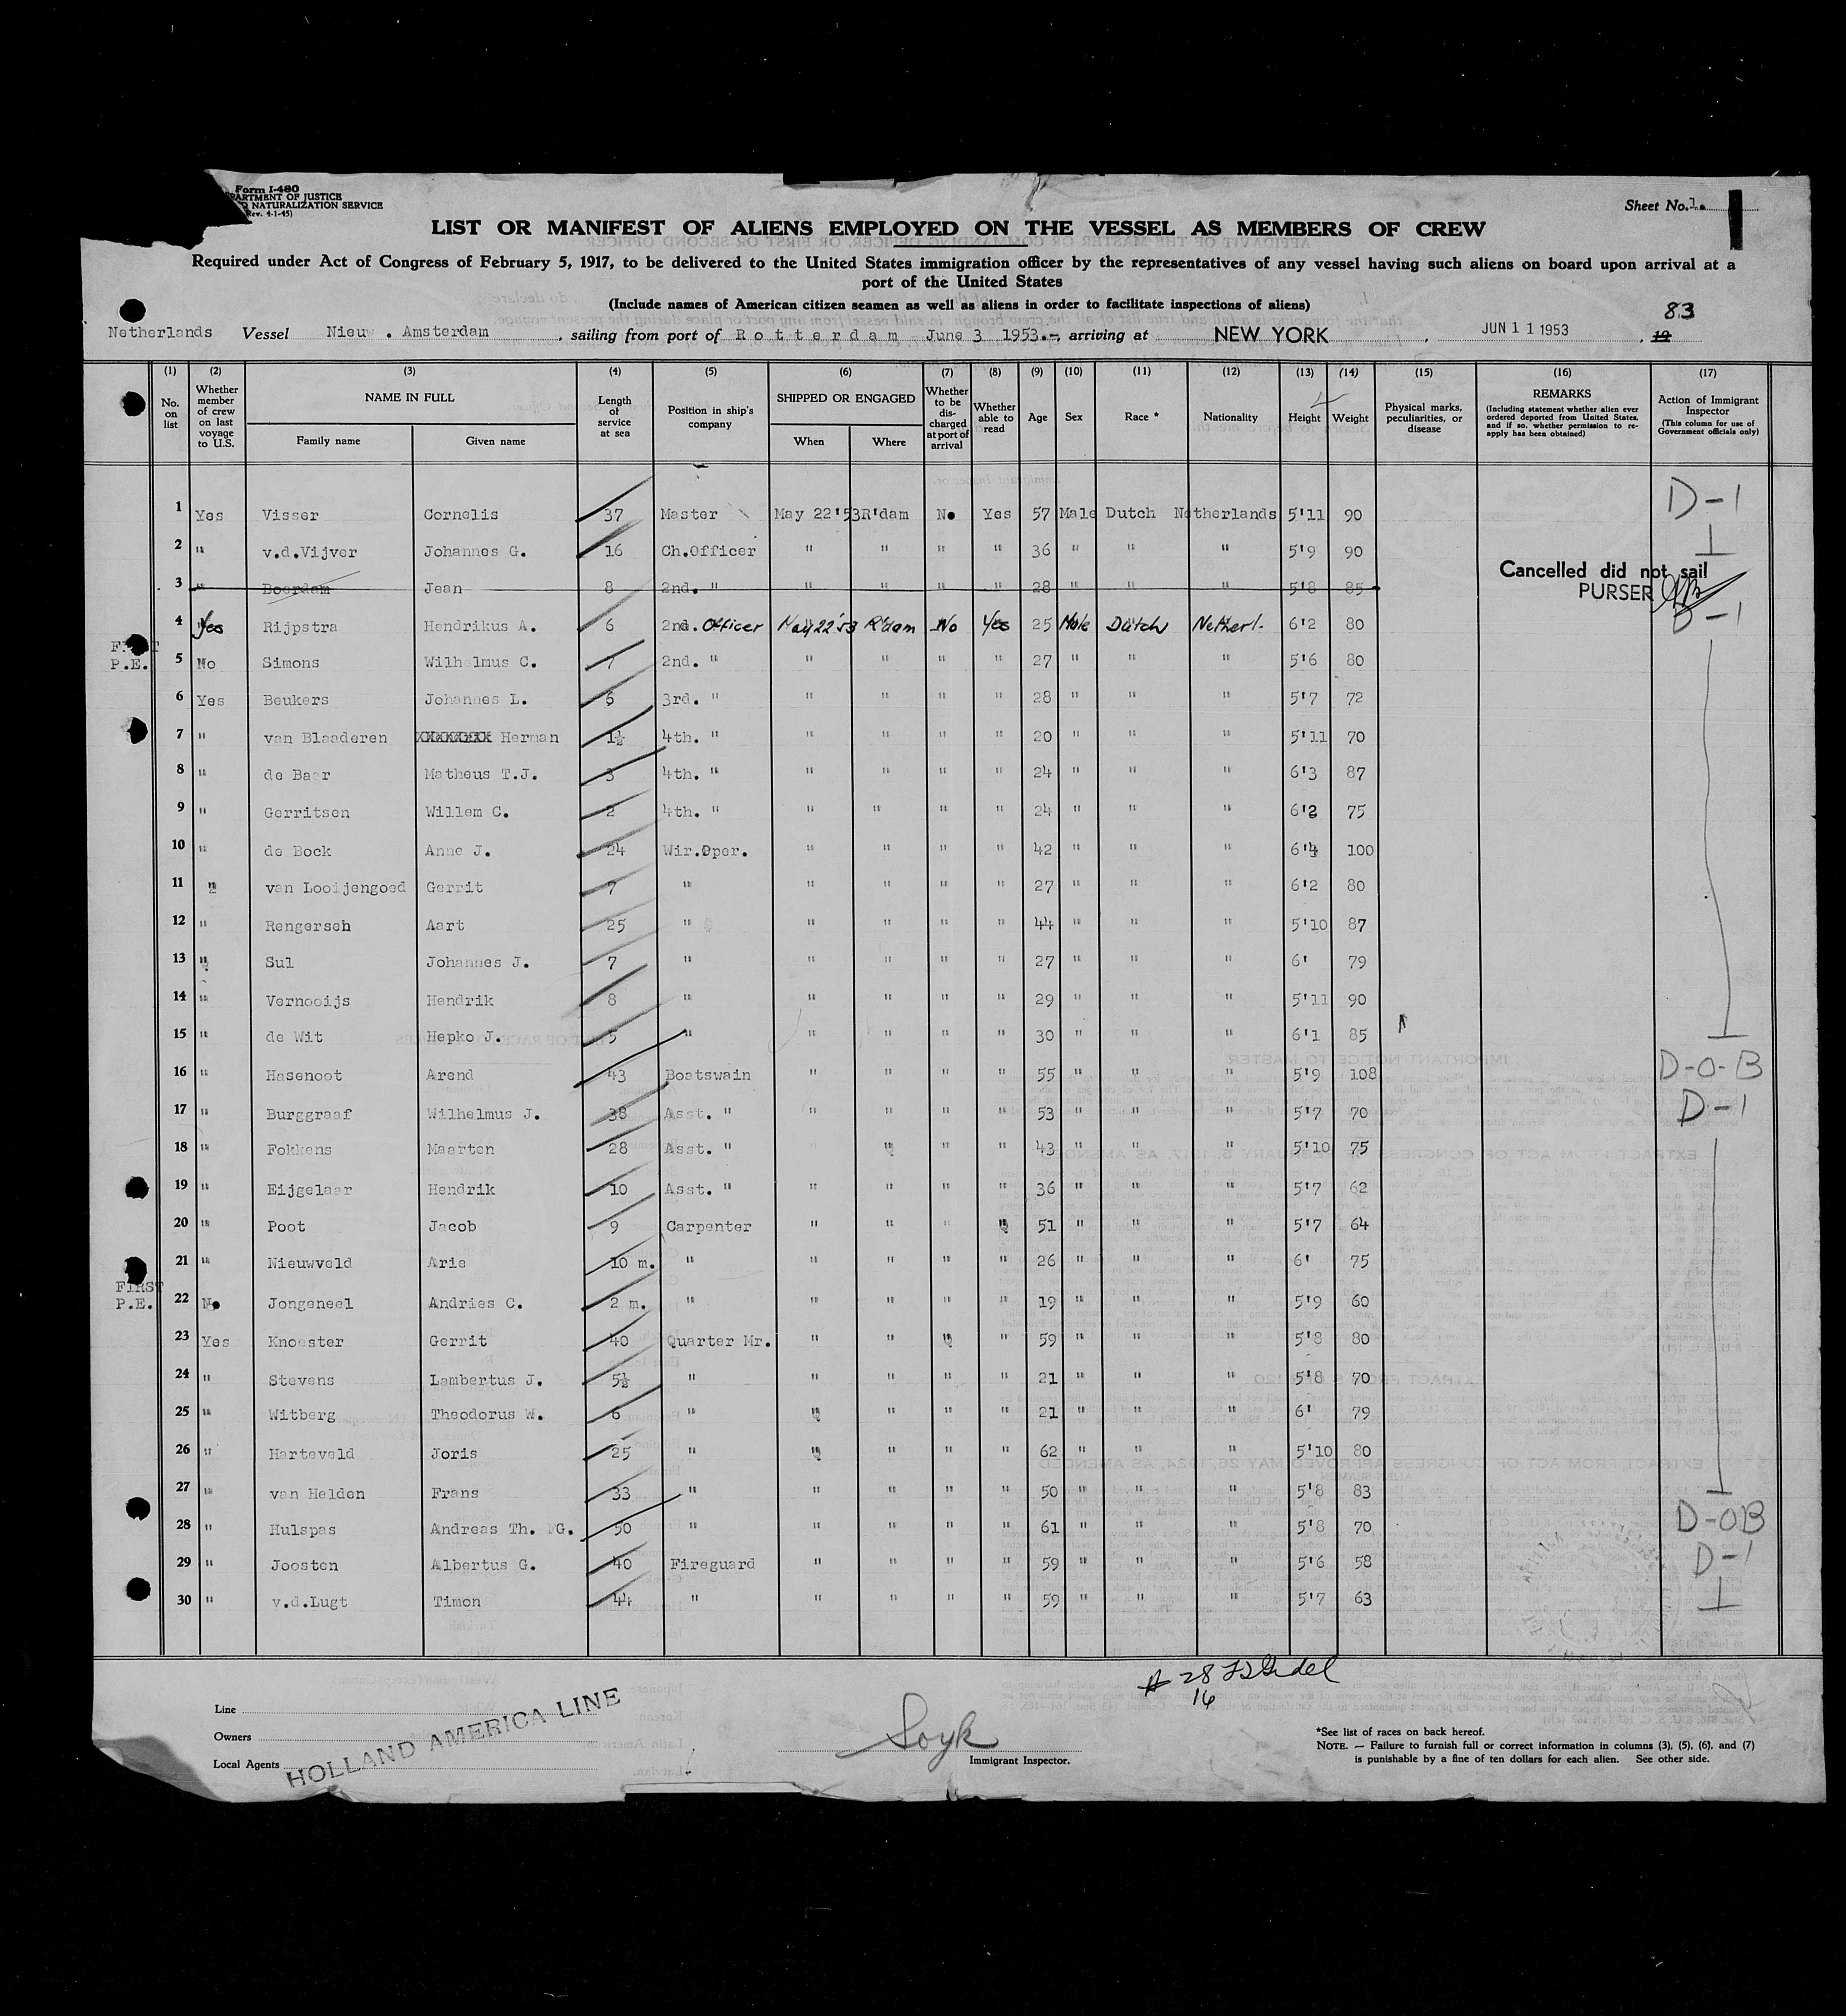 Form I-480
PARTMENT OF JUSTICE
NATURALIZATION SERVICE
Rev. 4-1-45)
Sheet No. 1.
LIST OR MANIFEST OF ALIENS EMPLOYED ON THE VESSEL AS MEMBERS OF CREW
Required under Act of Congress of February 5, 1917, to be delivered to the United States immigration officer by the representatives of any vessel having such aliens on board upon arrival at a
port of the United States
(Include names of American citizen seamen as well as aliens in order to facilitate inspections of aliens)
83
Netherlands Vessel Nieuw . Amsterdam , sailing from port of Rotterdam June 3 1953.-, arriving at NEW YORK , JUN 11 1953 , 19
(1) (2) (3) (4) (5) (6) (7) (8) (9) (10) (11) (12) (13) (14) (15) (16) (17)
No. on list
Whether member of crew on last voyage to U.S.
NAME IN FULL
Family name Given name
Length of service at sea
Position in ship's company
SHIPPED OR ENGAGED
When Where
Whether to be dis-charged at port of arrival
Whether able to read
Age Sex Race * Nationality Height Weight
Physical marks, peculiarities, or disease
REMARKS
(Including statement whether alien ever ordered deported from United States, and if so, whether permission to re-apply has been obtained)
Action of Immigrant Inspector
(This column for use of Government officials only)
1 Yes Visser Cornelis 37 Master May 22'53 R'dam No Yes 57 Male Dutch Netherlands 5'11 90 D-1
2 " v.d.Vijver Johannes G. 16 Ch.Officer " " " " 36 " " " 5'9 90
Cancelled did not sail
PURSER
3 " Boerdam Jean 8 2nd. " " " " " 28 " " " 5'8 85
4 Yes Rijpstra Hendrikus A. 6 2nd. Officer May 22'53 R'dam No Yes 25 Male Dutch Netherl. 6'2 80 D-1
FIRST
P.E. 5 No Simons Wilhelmus C. 7 2nd. " " " " " 27 " " " 5'6 80
6 Yes Beukers Johannes L. 6 3rd. " " " " " 28 " " " 5'7 72
7 " van Blaaderen XXXXXXXX Herman 1½ 4th. " " " " " 20 " " " 5'11 70
8 " de Baer Matheus T.J. 3 4th. " " " " " 24 " " " 6'3 87
9 " Gerritsen Willem C. 2 4th. " " " " " 24 " " " 6'2 75
10 " de Bock Anne J. 24 Wir.Oper. " " " " 42 " " " 6'4 100
11 " van Looijengoed Gerrit 7 " " " " " 27 " " " 6'2 80
12 " Rengerseh Aart 25 " " " " " 44 " " " 5'10 87
13 " Sul Johannes J. 7 " " " " " 27 " " " 6' 79
14 " Vernooijs Hendrik 8 " " " " " 29 " " " 5'11 90
15 " de Wit Hepko J. 5 " " " " " 30 " " " 6'1 85
16 " Hasenoot Arend 43 Boatswain " " " " 55 " " " 5'9 108 D-O-B
17 " Burggraaf Wilhelmus J. 38 Asst. " " " " " 53 " " " 5'7 70 D-1
18 " Fokkens Maarten 28 Asst. " " " " " 43 " " " 5'10 75
19 " Eijgelaar Hendrik 10 Asst. " " " " " 36 " " " 5'7 62
20 " Poot Jacob 9 Carpenter " " " " 51 " " " 5'7 64
21 " Nieuwveld Arie 10 m. " " " " " 26 " " " 6' 75
FIRST
P.E. 22 No Jongeneel Andries C. 2 m. " " " " " 19 " " " 5'9 60
23 Yes Knoester Gerrit 40 Quarter Mr. " " " " 59 " " " 5'8 80
24 " Stevens Lambertus J. 5½ " " " " " 21 " " " 5'8 70
25 " Witberg Theodorus W. 6 " " " " " 21 " " " 6' 79
26 " Harteveld Joris 25 " " " " " 62 " " " 5'10 80
27 " van Helden Frans 33 " " " " " 50 " " " 5'8 83
28 " Hulspas Andreas Th. G. 50 " " " " " 61 " " " 5'8 70 D-OB
29 " Joosten Albertus G. 40 Fireguard " " " " 59 " " " 5'6 58 D-1
30 " v.d.Lugt Timon 44 " " " " " 59 " " " 5'7 63
# 28
16
Line
Owners
Local Agents
HOLLAND AMERICA LINE
Soyk
Immigrant Inspector.
*See list of races on back hereof.
NOTE. — Failure to furnish full or correct information in columns (3), (5), (6), and (7)
is punishable by a fine of ten dollars for each alien. See other side.